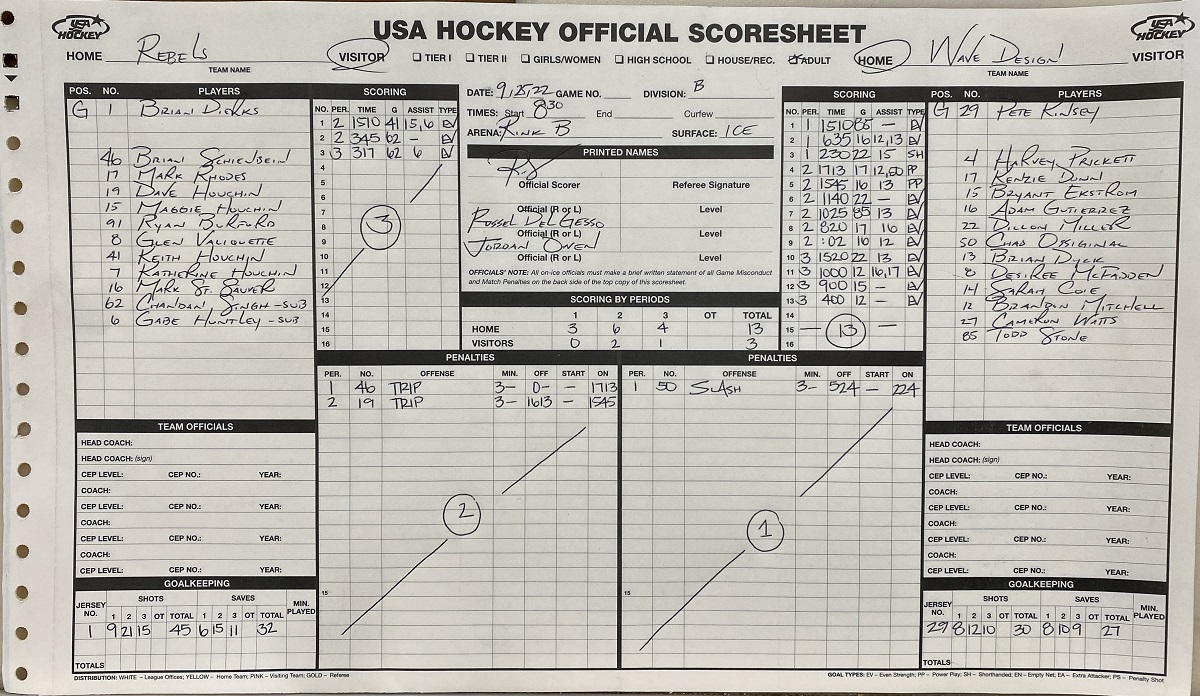 USA HOCKEY
USA HOCKEY OFFICIAL SCORESHEET
USA HOCKEY
HOME Rebels VISITOR TIER I TIER II GIRLS/WOMEN HIGH SCHOOL HOUSE/REC. ADULT HOME Wave Design VISITOR
TEAM NAME TEAM NAME
POS. NO. PLAYERS
G 1 Brian Dierks
46 Brian Schienbein
17 Mark Rhodes
19 Dave Houchin
15 Maggie Houchin
91 Ryan Burford
8 Glen Valiquette
41 Keith Houchin
7 Katherine Houchin
16 Mark St. Sauver
62 Chandan Singh - SUB
6 Gabe Huntley - SUB
SCORING
NO. PER. TIME G ASSIST TYPE
1 2 1510 41 15,6 EV
2 2 345 62 - EV
3 3 317 62 6 EV
4
5
6
7
8
9
10
11
12
13
14
15
16
3
DATE: 9/25/22 GAME NO. DIVISION: B
TIMES: Start 8:30 End Curfew
ARENA: Rink B SURFACE: ICE
PRINTED NAMES
Official Scorer Referee Signature
Official (R or L) Level
Rossel DelGesso
Official (R or L) Level
Jordan Owen
Official (R or L) Level
OFFICIALS' NOTE: All on-ice officials must make a brief written statement of all Game Misconduct
and Match Penalties on the back side of the top copy of this scoresheet.
SCORING BY PERIODS
1 2 3 OT TOTAL
HOME 3 6 4 13
VISITORS 0 2 1 3
SCORING
NO. PER. TIME G ASSIST TYPE
1 1 1510 85 - EV
2 1 635 16 12,13 EV
3 1 230 22 15 SH
4 2 1713 17 12,50 PP
5 2 1545 16 13 PP
6 2 1140 22 - EV
7 2 1025 85 13 EV
8 2 820 17 16 EV
9 2 :02 16 12 EV
10 3 1520 22 13 EV
11 3 1000 12 16,17 EV
12 3 900 15 - EV
13 3 400 12 - EV
14
15 - 13 -
16
POS. NO. PLAYERS
G 29 Pete Kinsey
4 Harvey Prickett
17 Kenzie Dunn
15 Bryant Ekstrom
16 Adam Gutierrez
22 Dillon Miller
50 Chad Original
13 Brian Dyck
8 Desiree McFadden
14 Sarah Coie
12 Brandon Mitchell
27 Cameron Watts
85 Todd Stone
PENALTIES
PER. NO. OFFENSE MIN. OFF START ON
1 46 TRIP 3- 0- - 1713
2 19 TRIP 3- 1613 - 1545
2
15
PENALTIES
PER. NO. OFFENSE MIN. OFF START ON
1 50 SLASH 3- 524 - 224
1
15
TEAM OFFICIALS
HEAD COACH:
HEAD COACH: (sign)
CEP LEVEL: CEP NO.: YEAR:
COACH:
CEP LEVEL: CEP NO.: YEAR:
COACH:
CEP LEVEL: CEP NO.: YEAR:
COACH:
CEP LEVEL: CEP NO.: YEAR:
GOALKEEPING
JERSEY NO. SHOTS SAVES MIN. PLAYED
1 2 3 OT TOTAL 1 2 3 OT TOTAL
1 9 21 15 45 6 15 11 32
TOTALS
TEAM OFFICIALS
HEAD COACH:
HEAD COACH: (sign)
CEP LEVEL: CEP NO.: YEAR:
COACH:
CEP LEVEL: CEP NO.: YEAR:
COACH:
CEP LEVEL: CEP NO.: YEAR:
COACH:
CEP LEVEL: CEP NO.: YEAR:
GOALKEEPING
JERSEY NO. SHOTS SAVES MIN. PLAYED
1 2 3 OT TOTAL 1 2 3 OT TOTAL
29 8 12 10 30 8 10 9 27
TOTALS
DISTRIBUTION: WHITE – League Offices; YELLOW – Home Team; PINK – Visiting Team; GOLD – Referee
GOAL TYPES: EV – Even Strength; PP – Power Play; SH – Shorthanded; EN – Empty Net; EA – Extra Attacker; PS – Penalty Shot